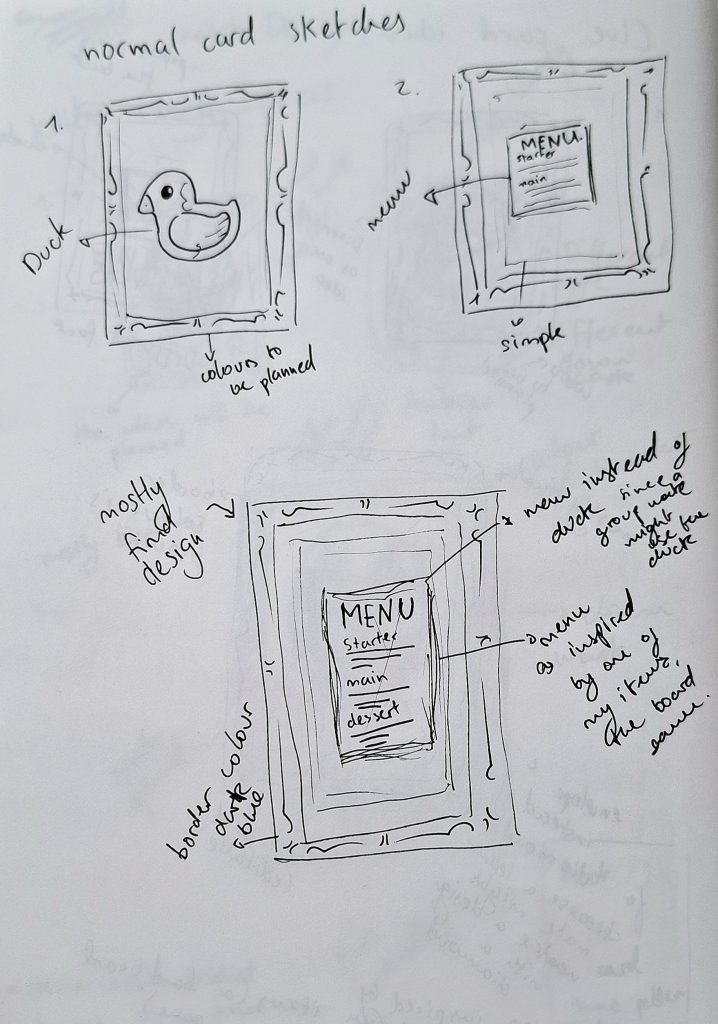 normal card sketches
1.
Duck
colours to
be planned
2.
MENU.
starter
main
menu
simple
mostly
final
design
MENU
starter
main
dessert
menu instead of
duck since a
group mate
might
use the
duck
menu
as inspired
by one of
my items,
the board
game.
border colour
dark
blue